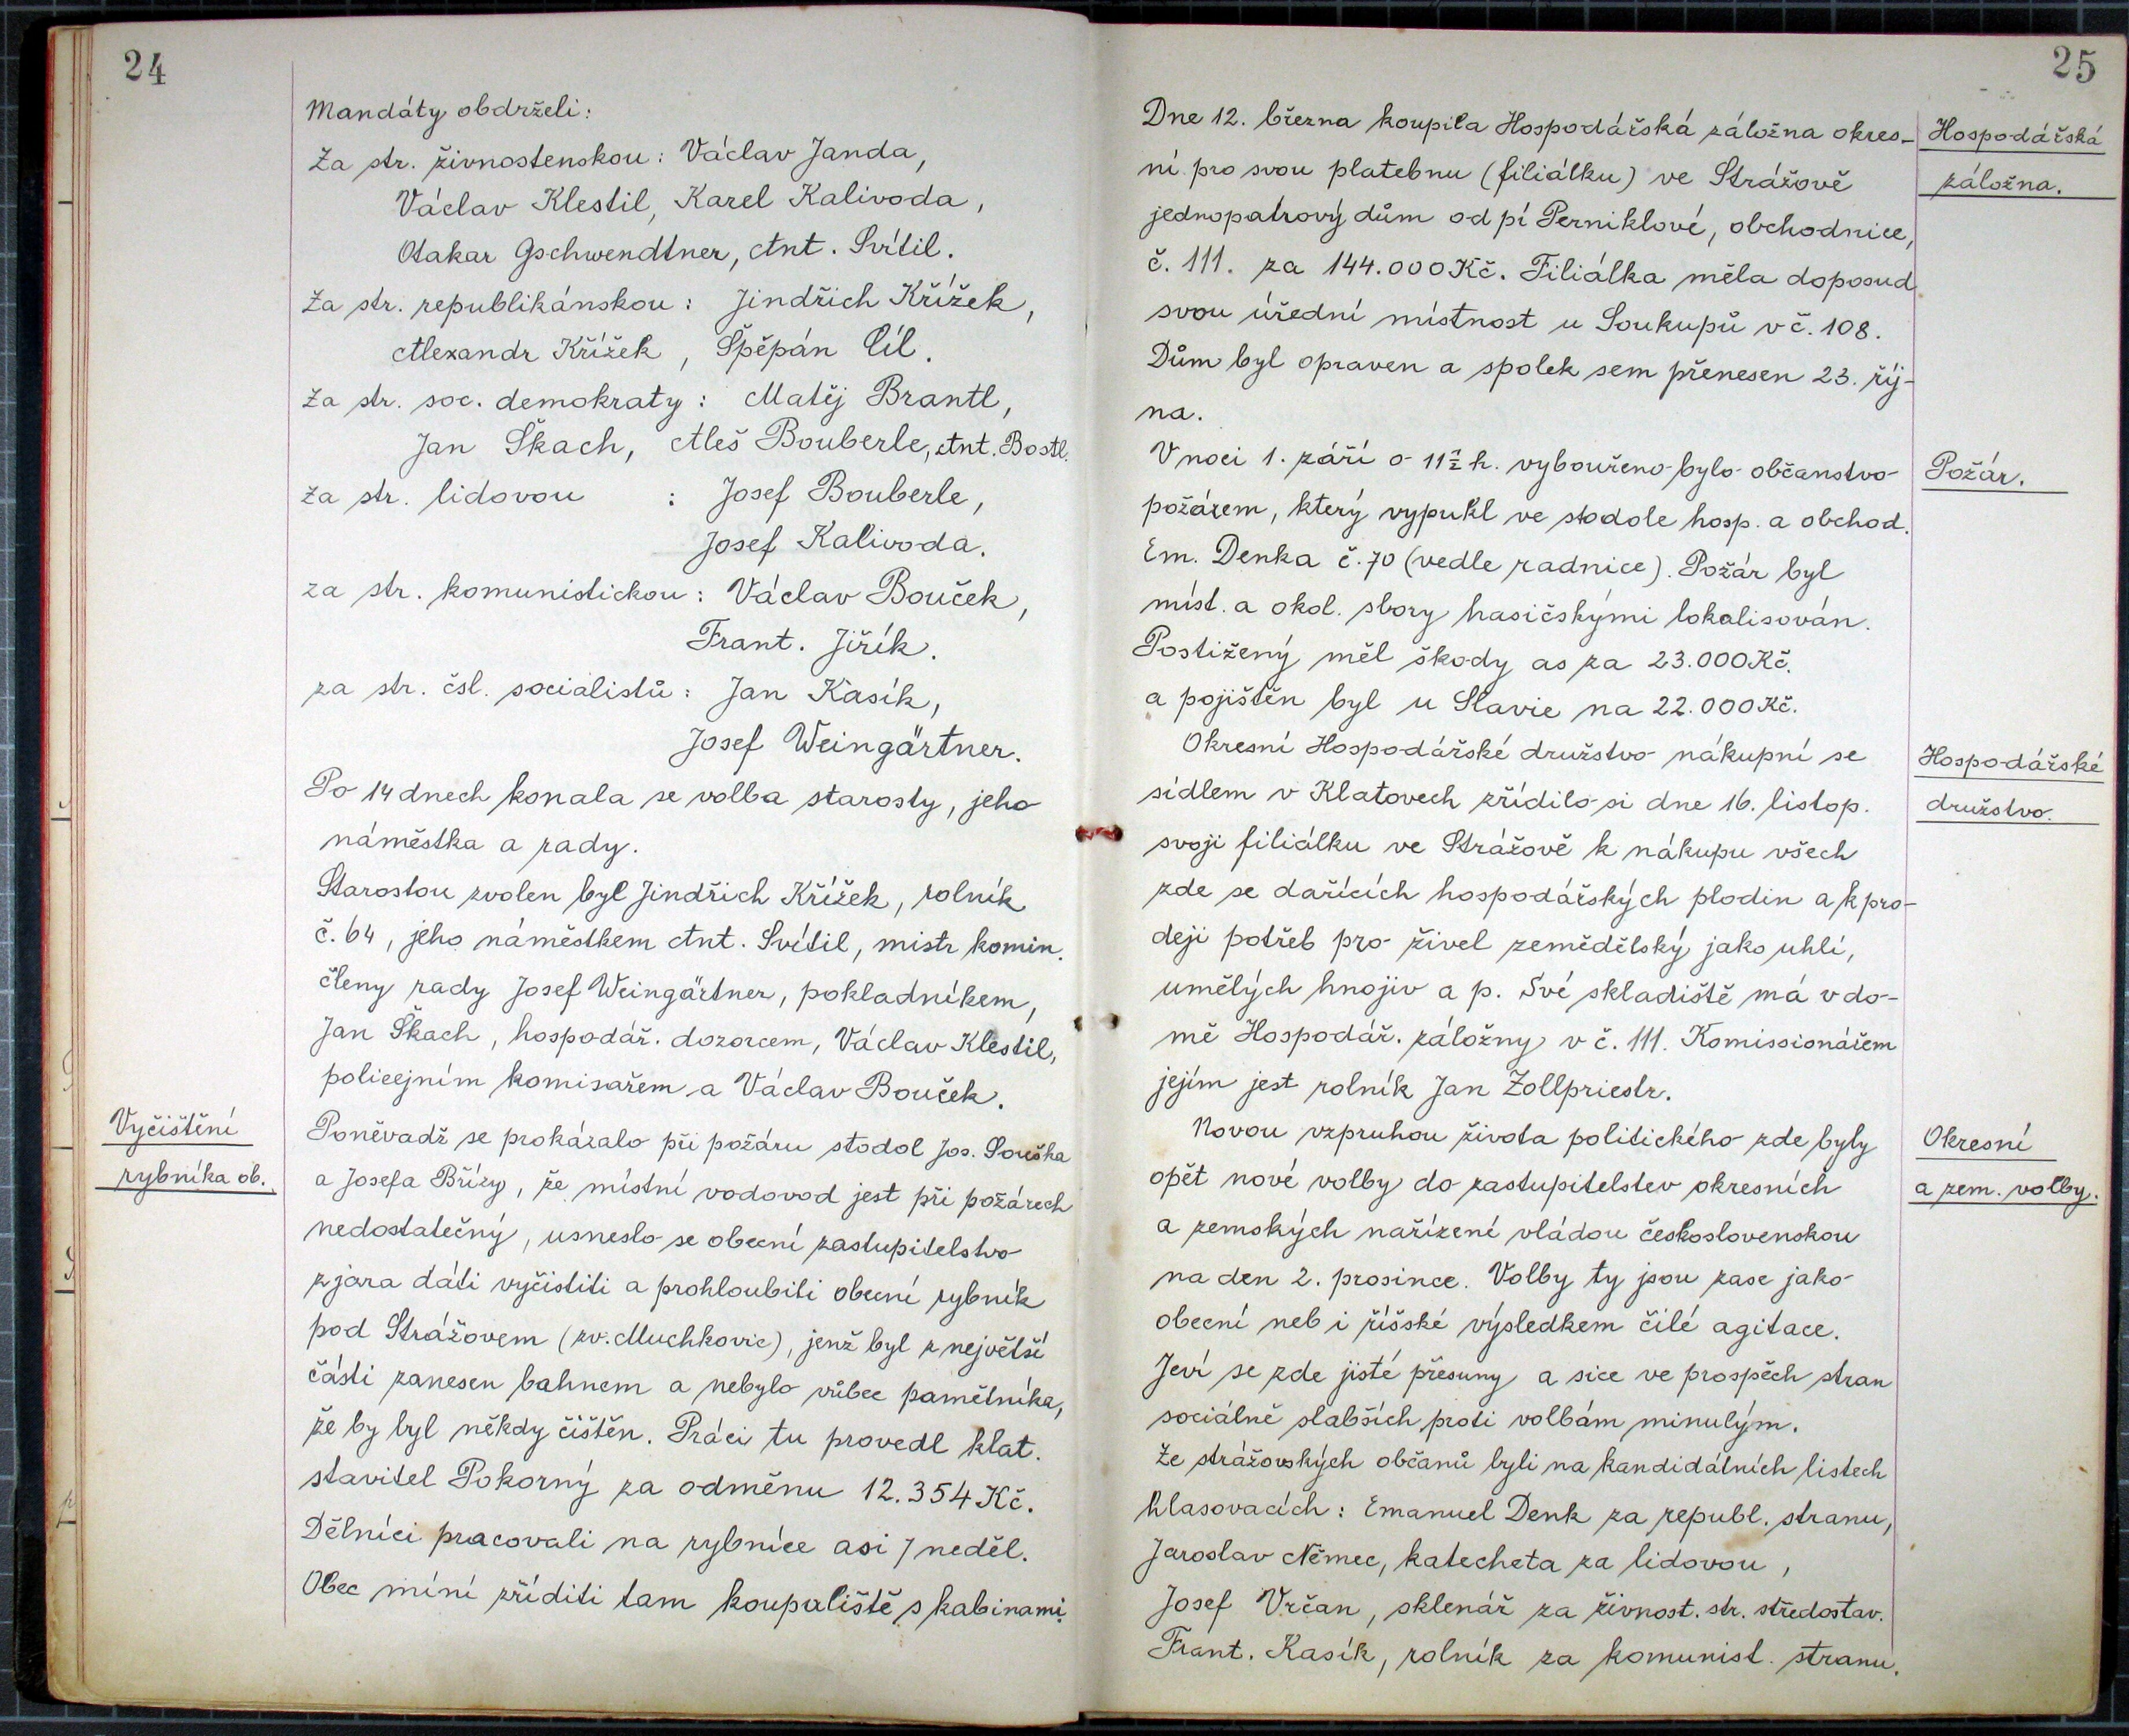 24
Mandáty obdrželi:
Za str. živnostenskou: Václav Janda,
Václav Klestil, Karel Kalivoda,
Otakar Gschwendtner, Ant. Svítil.
Za str. republikánskou: Jindřich Křížek,
Alexandr Křížek, Špěpán Cíl.
Za str. soc. demokraty: Matěj Brantl,
Jan Škach, Aleš Bouberle, Ant. Bostl.
Za str. lidovou : Josef Bouberle,
Josef Kalivoda.
za str. komunistickou: Václav Bouček,
Frant. Jiřík.
za str. čsl. socialistů: Jan Kasík,
Josef Weingärtner.
Po 14 dnech konala se volba starosty, jeho
náměstka a rady.
Starostou zvolen byl Jindřich Křížek, rolník
č. 64, jeho náměstkem Ant. Svítil, mistr komin.
členy rady Josef Weingärtner, pokladníkem,
Jan Škach, hospodář. dozorcem, Václav Klestil,
policejním komisařem a Václav Bouček.
Vyčištění
rybníka ob.
Poněvadž se prokázalo při požáru stodol Jos. Souška
a Josefa Břízy, že místní vodovod jest při požárech
nedostatečný, usneslo se obecní zastupitelstvo
z jara dáti vyčistiti a prohloubiti obecní rybník
pod Strážovem (zv. Muchkovic), jenž byl z největší
části zanesen bahnem a nebylo vůbec pamětníka,
že by byl někdy čištěn. Práci tu provedl klat.
stavitel Pokorný za odměnu 12.354 Kč.
Dělníci pracovali na rybníce asi 7 neděl.
Obec míní zříditi tam koupaliště s kabinami.
25
Dne 12. března koupila Hospodářská záložna okres-
ní pro svou platebnu (filiálku) ve Strážově
jednopatrový dům od pí Perniklové, obchodnice,
č. 111. za 144.000 Kč. Filiálka měla doposud
svou úřední místnost u Soukupů v č. 108.
Dům byl opraven a spolek sem přenesen 23. říj-
na.
Hospodářská
záložna.
V noci 1. září o 11½ h. vybouřeno bylo občanstvo
požárem, který vypukl ve stodole hosp. a obchod.
Em. Denka č. 70 (vedle radnice). Požár byl
míst. a okol. sbory hasičskými lokalisován.
Postižený měl škody as za 23.000 Kč.
a pojištěn byl u Slavie na 22.000 Kč.
Požár.
Okresní Hospodářské družstvo nákupní se
sídlem v Klatovech zřídilo si dne 16. listop.
svoji filiálku ve Strážově k nákupu všech
zde se dařících hospodářských plodin a k pro-
deji potřeb pro živel zemědělský jako uhlí,
umělých hnojiv a p. Své skladiště má v do-
mě Hospodář. záložny v č. 111. Komissionářem
jejím jest rolník Jan Zollpriestr.
Hospodářské
družstvo.
Novou vzpruhou života politického zde byly
opět nové volby do zastupitelstev okresních
a zemských nařízené vládou československou
na den 2. prosince. Volby ty jsou zase jako
obecní neb i říšské výsledkem čilé agitace.
Jeví se zde jisté přesuny a sice ve prospěch stran
sociálně slabších proti volbám minulým.
Ze strážovských občanů byli na kandidátních listech
hlasovacích: Emanuel Denk za republ. stranu,
Jaroslav Němec, katecheta za lidovou,
Josef Vrčan, sklenář za živnost. str. středostav.
Frant. Kasík, rolník za komunist. stranu.
Okresní
a zem. volby.